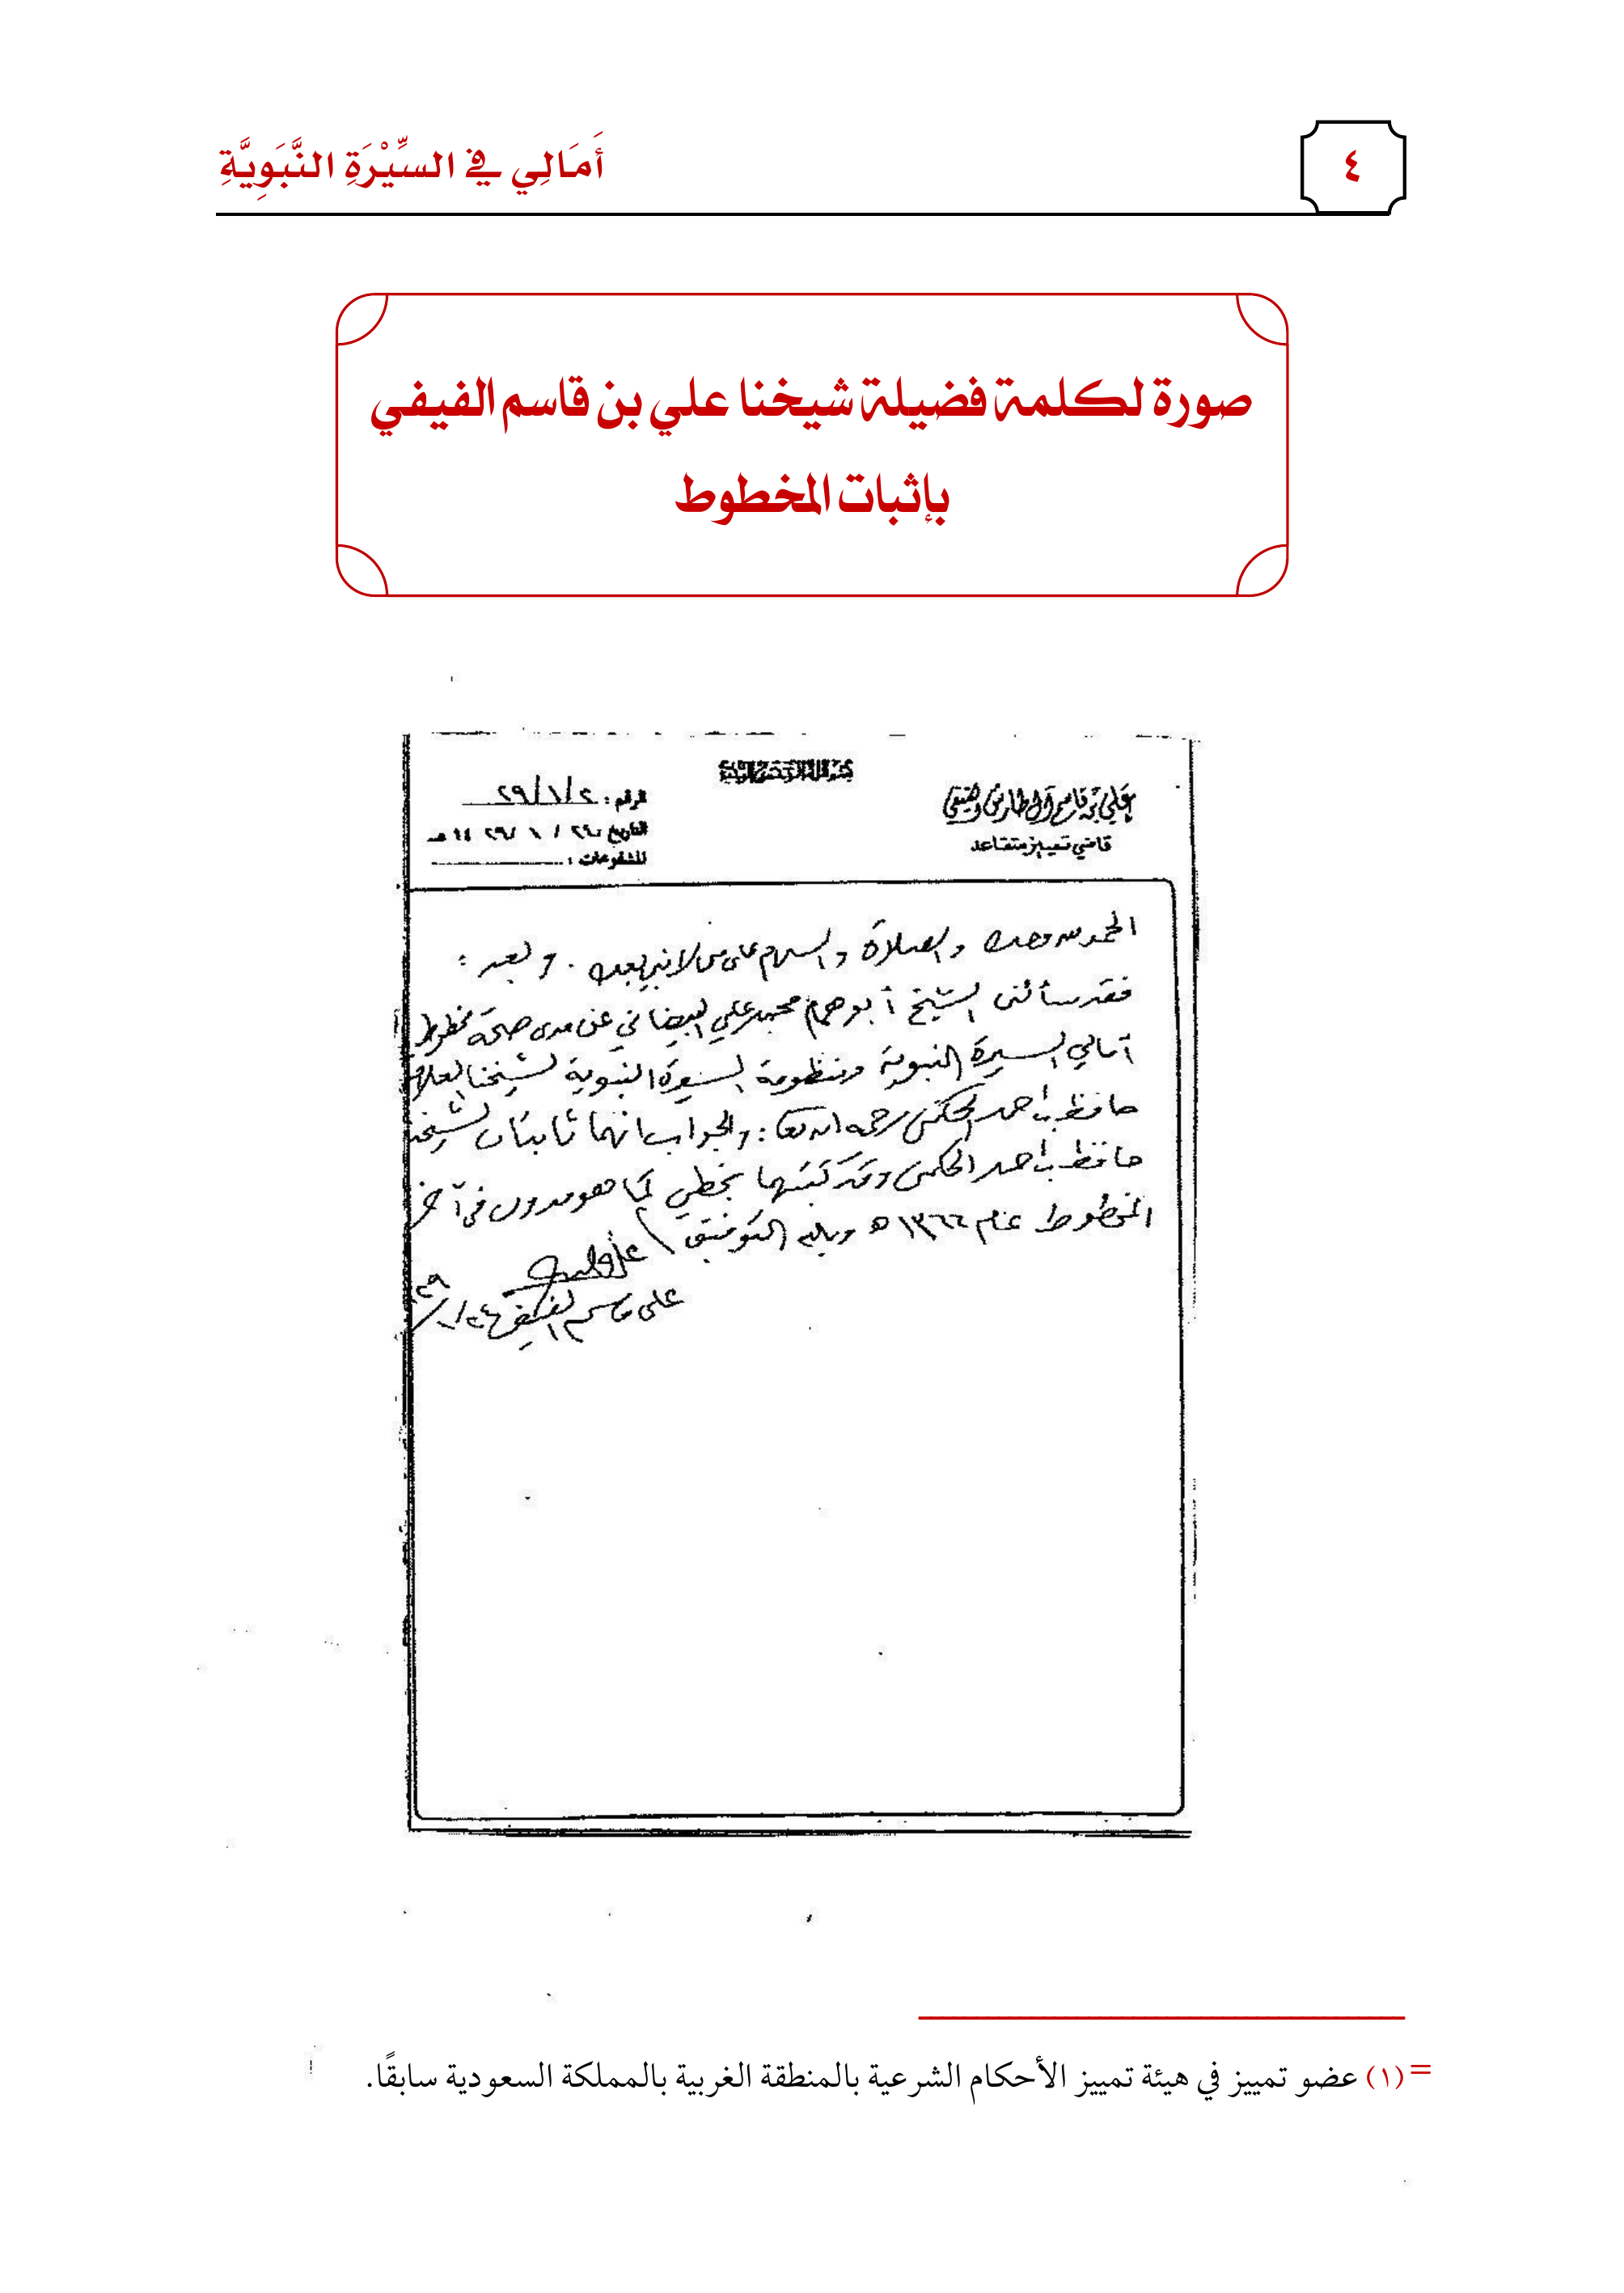 ٤
أَمَالِي فِي السِّيْرَةِ النَّبَوِيَّةِ
صورة لكلمة فضيلة شيخنا علي بن قاسم الفيفي
بإثبات المخطوط
بسم الله الرحمن الرحيم
علي بن قاسم آل طارش الفيفي
قاضي تمييز متقاعد
الرقم : ٢٩/١/٢
التاريخ ٢٦ / ١ / ١٤٢٩ هـ
المشفوعات :
الحمد لله وحده والصلاة والسلام على من لا نبي بعده . وبعد :
فقد سألني الشيخ أبو همام محمد علي البيضاني عن مدى صحة مخطوط
أمالي السيرة النبوية ومنظومة السيرة النبوية لشيخنا العلامة
حافظ بن أحمد الحكمي رحمه الله تعالى : والجواب انهما ثابتان لشيخنا
حافظ بن أحمد الحكمي وقد كتبتهما بخطي كما هو مدون في آخر
المخطوط عام ١٣٦٦ هـ وبالله التوفيق
علي قاسم الفيفي
=(١) عضو تمييز في هيئة تمييز الأحكام الشرعية بالمنطقة الغربية بالمملكة السعودية سابقًا.